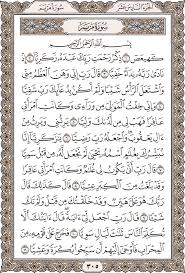 الجزء السادس عشر سورة مريم
سُورَةُ مَرْيَمَ
بِسْمِ ٱللَّهِ ٱلرَّحْمَٰنِ ٱلرَّحِيمِ
كٓهيعٓصٓ ۝١ ذِكْرُ رَحْمَتِ رَبِّكَ عَبْدَهُۥ زَكَرِيَّآ ۝٢ إِذْ
نَادَىٰ رَبَّهُۥ نِدَآءً خَفِيًّا ۝٣ قَالَ رَبِّ إِنِّى وَهَنَ ٱلْعَظْمُ مِنِّى
وَٱشْتَعَلَ ٱلرَّأْسُ شَيْبًا وَلَمْ أَكُنۢ بِدُعَآئِكَ رَبِّ شَقِيًّا ۝٤
وَإِنِّى خِفْتُ ٱلْمَوَٰلِىَ مِن وَرَآءِى وَكَانَتِ ٱمْرَأَتِى
عَاقِرًا فَهَبْ لِى مِن لَّدُنكَ وَلِيًّا ۝٥ يَرِثُنِى وَيَرِثُ مِنْ
ءَالِ يَعْقُوبَ وَٱجْعَلْهُ رَبِّ رَضِيًّا ۝٦ يَٰزَكَرِيَّآ إِنَّا
نُبَشِّرُكَ بِغُلَٰمٍ ٱسْمُهُۥ يَحْيَىٰ لَمْ نَجْعَل لَّهُۥ مِن قَبْلُ سَمِيًّا ۝٧
قَالَ رَبِّ أَنَّىٰ يَكُونُ لِى غُلَٰمٌ وَكَانَتِ ٱمْرَأَتِى عَاقِرًا
وَقَدْ بَلَغْتُ مِنَ ٱلْكِبَرِ عِتِيًّا ۝٨ قَالَ كَذَٰلِكَ قَالَ رَبُّكَ
هُوَ عَلَىَّ هَيِّنٌ وَقَدْ خَلَقْتُكَ مِن قَبْلُ وَلَمْ تَكُ شَيْـًٔا ۝٩
قَالَ رَبِّ ٱجْعَل لِّىٓ ءَايَةً قَالَ ءَايَتُكَ أَلَّا تُكَلِّمَ ٱلنَّاسَ
ثَلَٰثَ لَيَالٍ سَوِيًّا ۝١٠ فَخَرَجَ عَلَىٰ قَوْمِهِۦ مِنَ
ٱلْمِحْرَابِ فَأَوْحَىٰٓ إِلَيْهِمْ أَن سَبِّحُوا۟ بُكْرَةً وَعَشِيًّا ۝١١
٣٠٥